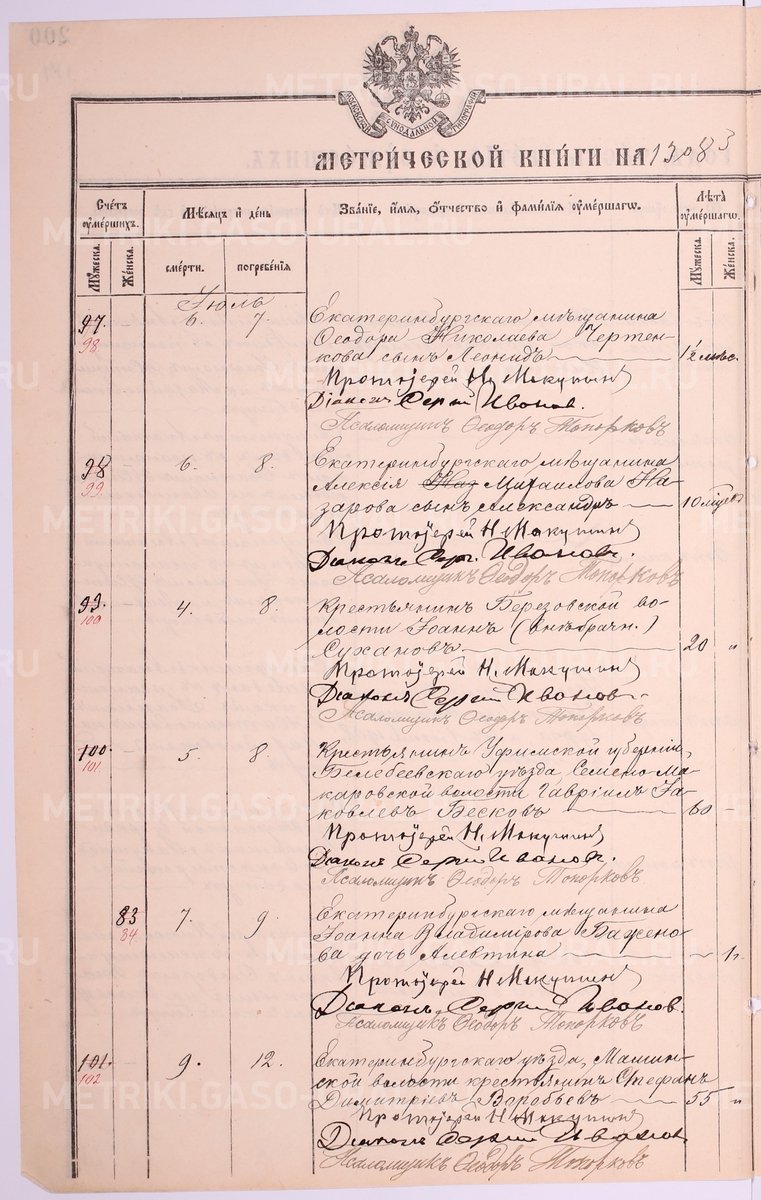 МОСКОВСКОЙ СѴНОДАЛЬНОЙ ТИПОГРАФІИ
МЕТРИ́ЧЕСКОЙ КНИ́ГИ НА 1908
Счетъ ѹмершихъ.
Мѣсяцъ и день
Званіе, имя, отчество и фамилія ѹмершагѡ.
Лѣта ѹмершагѡ.
Мѹжеска.
Женска.
смерти.
погребенія
Мѹжеска.
Женска.
Іюль
97. 98. 6. 7. Екатеринбургскаго мѣщанина
Ѳеодора Николаева Чертен-
кова сынъ Леонидъ
Протоіерей Н. Макушинъ
Діаконъ Сергій Ивановъ.
Псаломщикъ Ѳеодоръ Топорковъ
98 99. 6. 8. Екатеринбургскаго мѣщанина
Алексія Наз Михаилова На-
зарова сынъ Александръ 10 мѣсяц
Протоіерей Н Макушинъ
Діаконъ Серг. Ивановъ.
Псаломщикъ Ѳеодоръ Топорковъ
99. 100 4. 8. Крестьянинъ Березовской во-
лости Іоаннъ (внѣбрачн.)
Сухановъ 20 "
Протоіерей Н. Макушинъ
Діаконъ Сергій Ивановъ.
Псаломщикъ Ѳеодоръ Топорковъ
100. 101. 5. 8. Крестьянинъ Уфимской губерніи,
Белебеевскаго уѣзда, Семено-Ма-
каровской волости Гавріилъ Іа-
ковлевъ Бесковъ 60 -
Протоіерей Н. Макушинъ
Діаконъ Сергій Ивановъ.
Псаломщикъ Ѳеодоръ Топорковъ
83 84. 7. 9. Екатеринбургскаго мѣщанина
Іоанна Владимірова Бажено-
ва дочь Алевтина 1 г.
Протоіерей Н Макушинъ
Діаконъ Сергій Ивановъ.
Псаломщикъ Ѳеодоръ Топорковъ
101. 102 9. 12. Екатеринбургскаго уѣзда, Мамин-
ской волости крестьянинъ Стефанъ
Димитріевъ Воробьевъ 55 "
Протоіерей Н Макушинъ
Діаконъ Сергій Ивановъ
Псаломщикъ Ѳеодоръ Топорковъ
METRIKI.GASO-URAL.RU